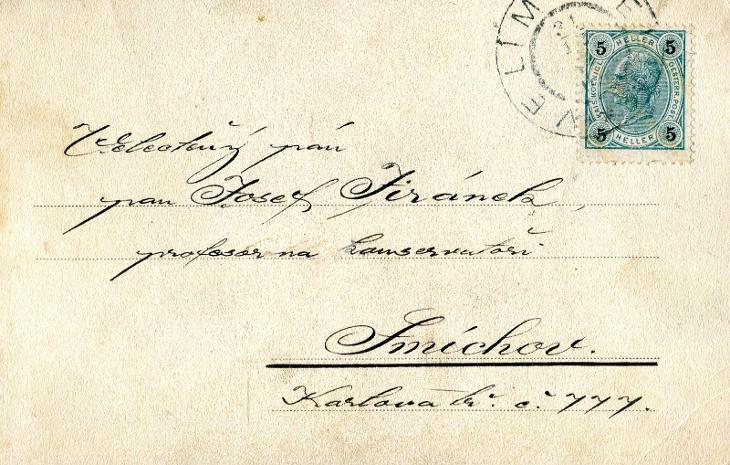 VELIM
5 HELLER 5
KAIS. KOENIGL. OESTERR. POST.
5 HELLER 5
Velectěný pán
pan Josef Jiránek,
profosor na konservatoři
Smíchov.
Karlova tř. č. 777.